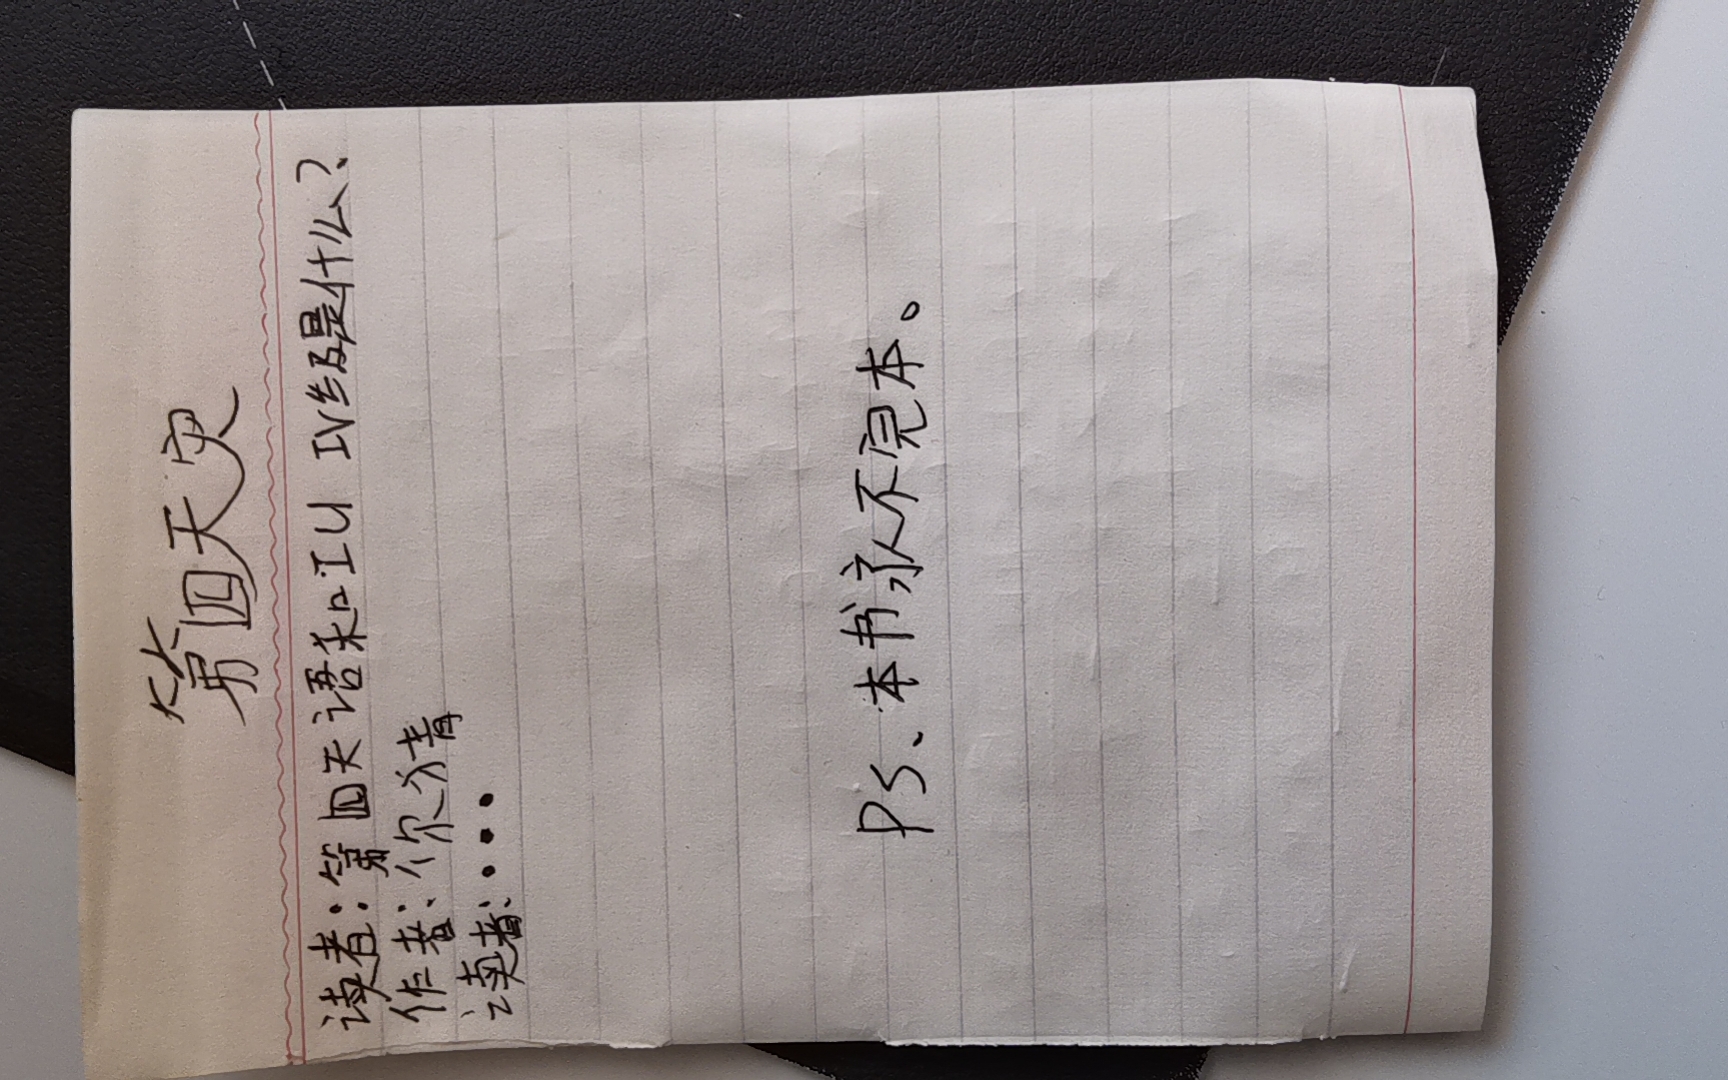 第四天灾
读者：第四天语和IU IV级是什么？
作者：你猜
读者：····
PS、本书永不完本。